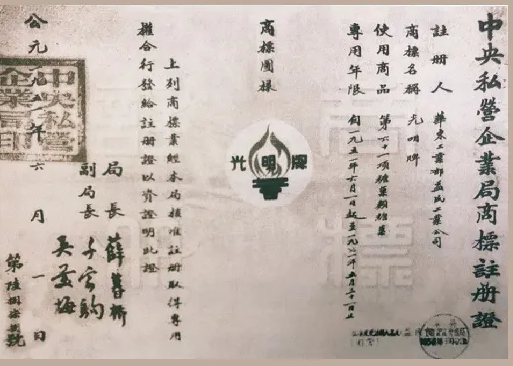 中央私營企業局商標註冊證
註冊人 華東工業部益民工業公司
商標名稱 光明牌
使用商品 第六十一項糖菓類糖菓
專用年限 自一九五一年六月一日起至一九
商標圖樣
光明牌
上列商標業經本局核准註冊取得專用
權合行發給註冊證以資證明此證
局長 薛暮橋
副局長 千家駒
吳羹梅
公元一九五一年六月一日
中央私營企業局印